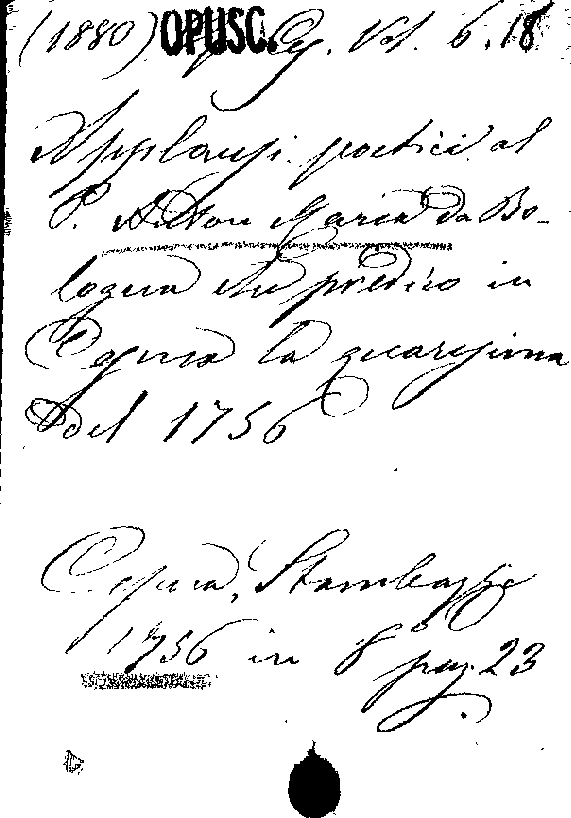 (1880) OPUSC. Vol. 6. 18
Applausi poetici al
P. Anton Maria da Bo-
logna che predicò in
la quaresima
del 1756
Stambazzi
1756 in 8° pag. 23